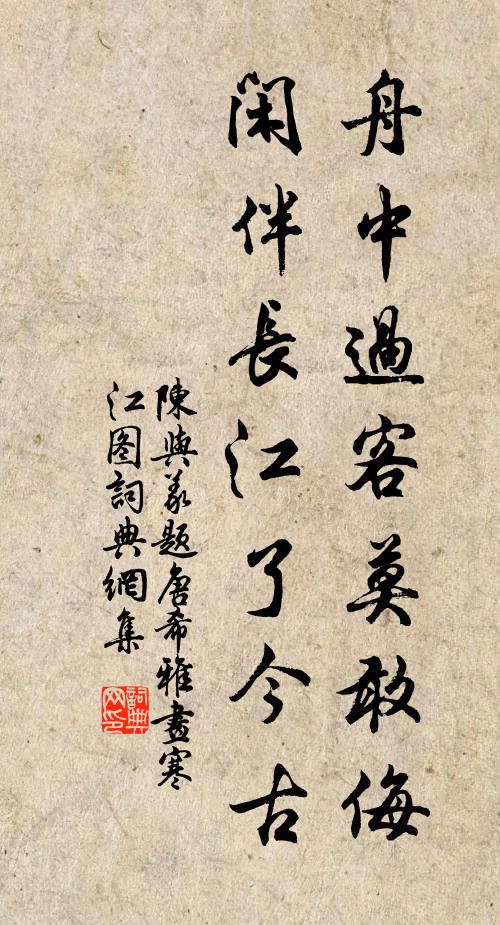 舟中過客莫敢侮
閑伴長江了今古
陳與義題唐希雅畫寒
江图詞典網集
詞典
网印